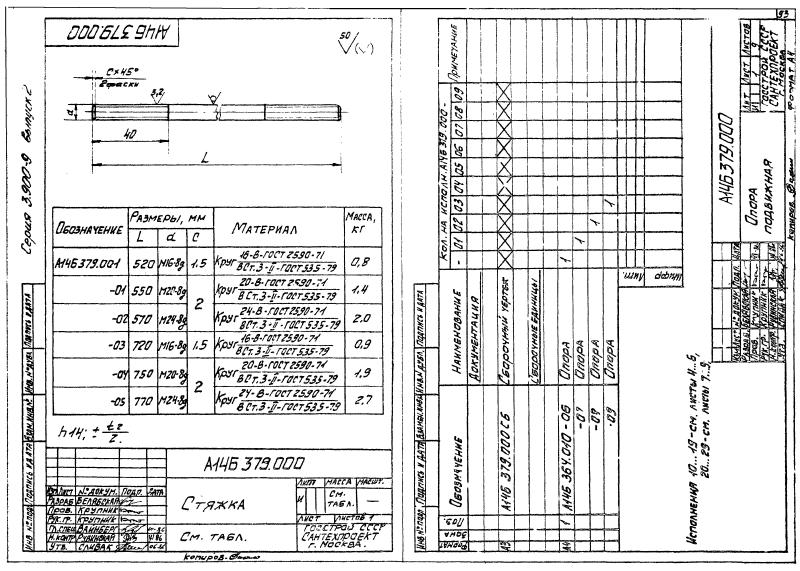 93
А14Б 379.000
50 √(√)
Серия 3.900-9 Выпуск 2
С×45°
2 фаски
3,2
d
40
L
Обозначение
Размеры, мм
L d c
Материал
Масса, кг
А14Б379.001 520 М16-8g 1.5 Круг 16-В-ГОСТ 2590-71 / ВСт.3-II-ГОСТ 535-79 0,8
-01 550 М20-8g 2 Круг 20-В-ГОСТ 2590-71 / ВСт.3-II-ГОСТ 535-79 1.4
-02 570 М24-8g Круг 24-В-ГОСТ 2590-71 / ВСт.3-II-ГОСТ 535-79 2.0
-03 720 М16-8g 1.5 Круг 16-В-ГОСТ 2590-71 / ВСт.3-II-ГОСТ 535-79 0.9
-04 750 М20-8g 2 Круг 20-В-ГОСТ 2590-71 / ВСт.3-II-ГОСТ 535-79 1,9
-05 770 М24-8g Круг 24-В-ГОСТ 2590-71 / ВСт.3-II-ГОСТ 535-79 2.7
h14; ± t2/2.
А14Б 379.000
Стяжка
См. табл.
Лит Масса Масшт.
И См. табл. —
Лист Листов 1
Госстрой СССР
Сантехпроект
г. Москва.
Изм Лист № докум. Подп. Дата
Разраб Белявская
Пров. Крупник
Рук.гр. Крупник
Гл.спец. Вайнберг
Н.контр Рубинская
Утв. Сливак
Копиров.
Инв.№ подл. Подпись и дата Взам.инв.№ Инв.№ дубл. Подпись и дата
Формат Зона Поз. Обозначение Наименование Кол. на исполн. А14Б 379.000 - Примечание
- 01 02 03 04 05 06 07 08 09
Документация
А3 А14Б 379.000 СБ Сборочный чертеж
Сборочные единицы
А4 1 А14Б 364.010 -06 Опора 1
-07 Опора 1
-08 Опора 1
-09 Опора 1
Исполнения 10...19-см. листы 4...6,
20...29-см. листы 7...9.
Инв.№ подл. Подпись и дата Взам.инв.№ Инв.№ дубл. Подпись и дата
А14Б 379.000
Опора
подвижная
Лит Лист Листов
И 1 9
Госстрой СССР
Сантехпроект
г. Москва
Копиров. Формат А4